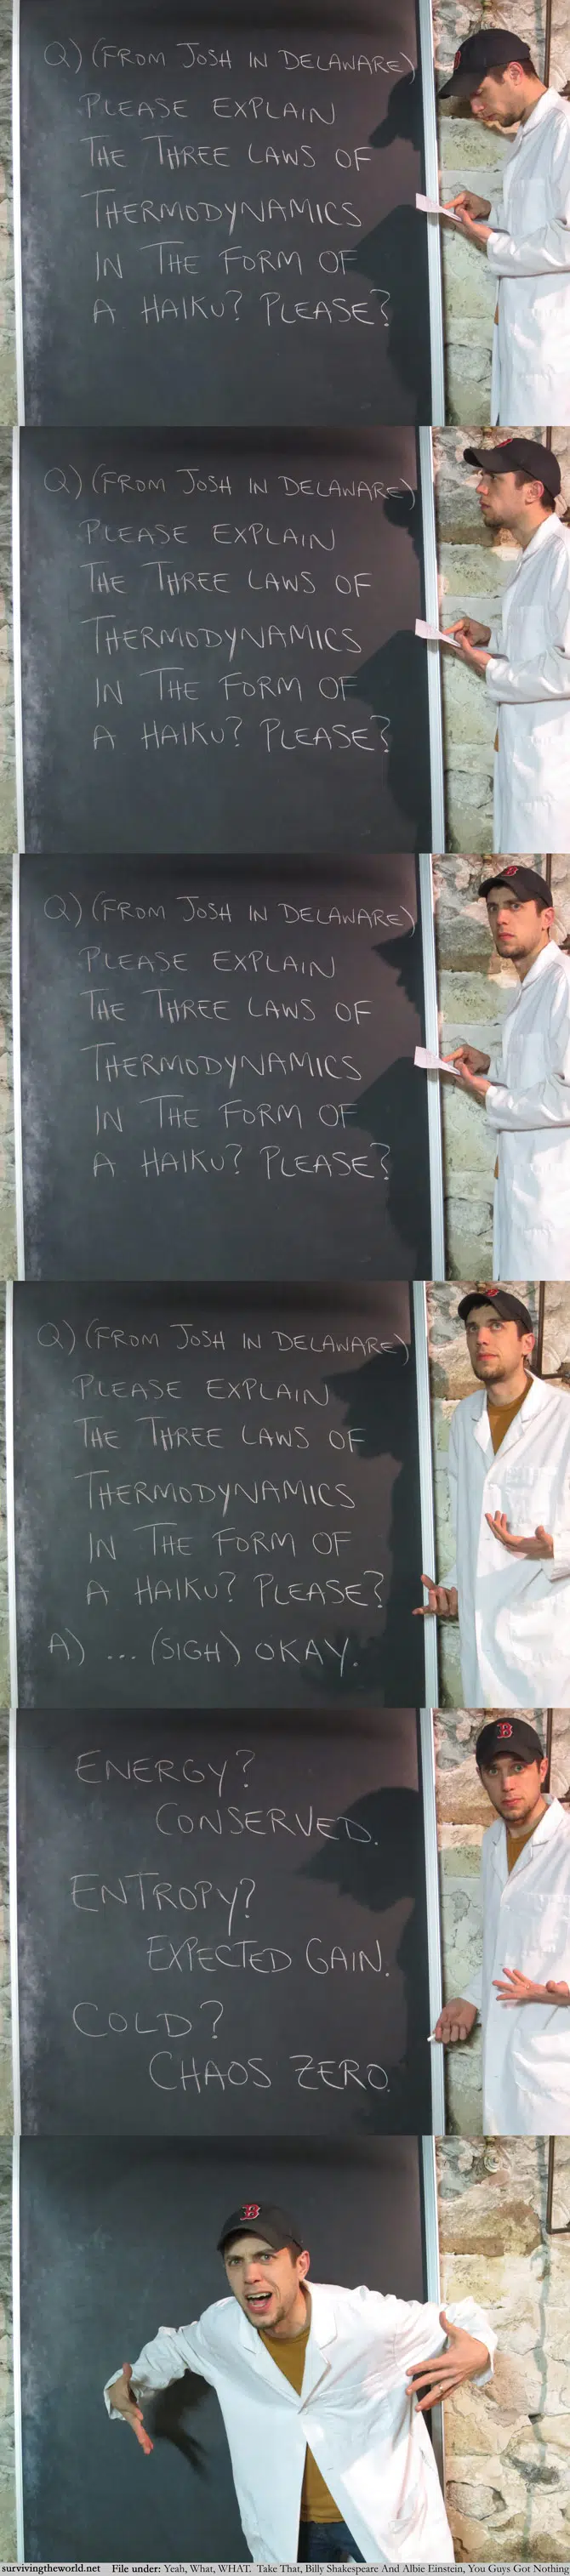 Q) (FROM JOSH IN DELAWARE)
PLEASE EXPLAIN
THE THREE LAWS OF
THERMODYNAMICS
IN THE FORM OF
A HAIKU? PLEASE?
Q) (FROM JOSH IN DELAWARE)
PLEASE EXPLAIN
THE THREE LAWS OF
THERMODYNAMICS
IN THE FORM OF
A HAIKU? PLEASE?
B
Q) (FROM JOSH IN DELAWARE)
PLEASE EXPLAIN
THE THREE LAWS OF
THERMODYNAMICS
IN THE FORM OF
A HAIKU? PLEASE?
B
Q) (FROM JOSH IN DELAWARE)
PLEASE EXPLAIN
THE THREE LAWS OF
THERMODYNAMICS
IN THE FORM OF
A HAIKU? PLEASE?
A) ... (SIGH) OKAY.
B
ENERGY?
CONSERVED.
ENTROPY?
EXPECTED GAIN.
COLD?
CHAOS ZERO.
B
survivingtheworld.net File under: Yeah, What, WHAT. Take That, Billy Shakespeare And Albie Einstein, You Guys Got Nothing